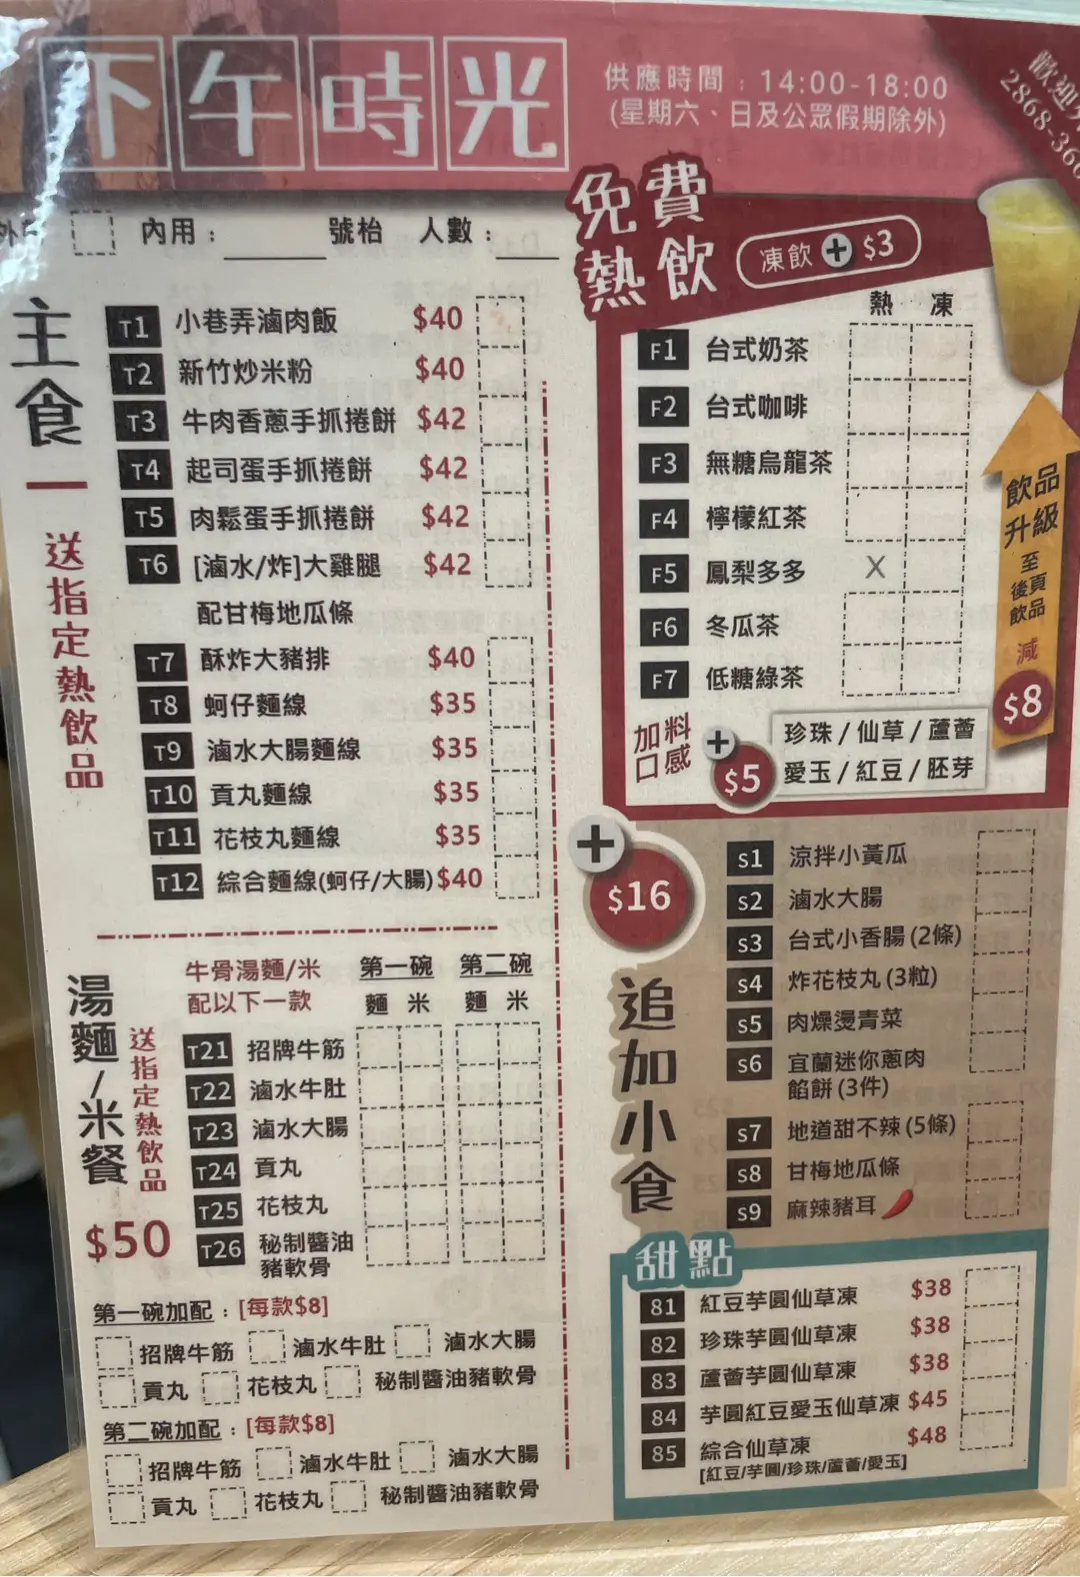 下午時光
供應時間：14:00-18:00
(星期六、日及公眾假期除外)
歡迎
2868-36
內用：
號枱
人數：
主食
送指定熱飲品
T1 小巷弄滷肉飯 $40
T2 新竹炒米粉 $40
T3 牛肉香蔥手抓捲餅 $42
T4 起司蛋手抓捲餅 $42
T5 肉鬆蛋手抓捲餅 $42
T6 [滷水/炸]大雞腿 $42
配甘梅地瓜條
T7 酥炸大豬排 $40
T8 蚵仔麵線 $35
T9 滷水大腸麵線 $35
T10 貢丸麵線 $35
T11 花枝丸麵線 $35
T12 綜合麵線(蚵仔/大腸) $40
湯麵/米餐
送指定熱飲品
$50
牛骨湯麵/米
配以下一款
第一碗 第二碗
麵 米 麵 米
T21 招牌牛筋
T22 滷水牛肚
T23 滷水大腸
T24 貢丸
T25 花枝丸
T26 秘制醬油
豬軟骨
第一碗加配：[每款$8]
招牌牛筋 滷水牛肚 滷水大腸
貢丸 花枝丸 秘制醬油豬軟骨
第二碗加配：[每款$8]
招牌牛筋 滷水牛肚 滷水大腸
貢丸 花枝丸 秘制醬油豬軟骨
免費
熱飲
凍飲+$3
熱 凍
F1 台式奶茶
F2 台式咖啡
F3 無糖烏龍茶
F4 檸檬紅茶
F5 鳳梨多多 X
F6 冬瓜茶
F7 低糖綠茶
飲品
升級
至
後頁
飲品
減
$8
加料
口感
+
$5
珍珠/仙草/蘆薈
愛玉/紅豆/胚芽
+
$16
追加小食
S1 涼拌小黃瓜
S2 滷水大腸
S3 台式小香腸(2條)
S4 炸花枝丸(3粒)
S5 肉燥燙青菜
S6 宜蘭迷你蔥肉
餡餅(3件)
S7 地道甜不辣(5條)
S8 甘梅地瓜條
S9 麻辣豬耳
甜點
81 紅豆芋圓仙草凍 $38
82 珍珠芋圓仙草凍 $38
83 蘆薈芋圓仙草凍 $38
84 芋圓紅豆愛玉仙草凍 $45
85 綜合仙草凍 $48
[紅豆/芋圓/珍珠/蘆薈/愛玉]